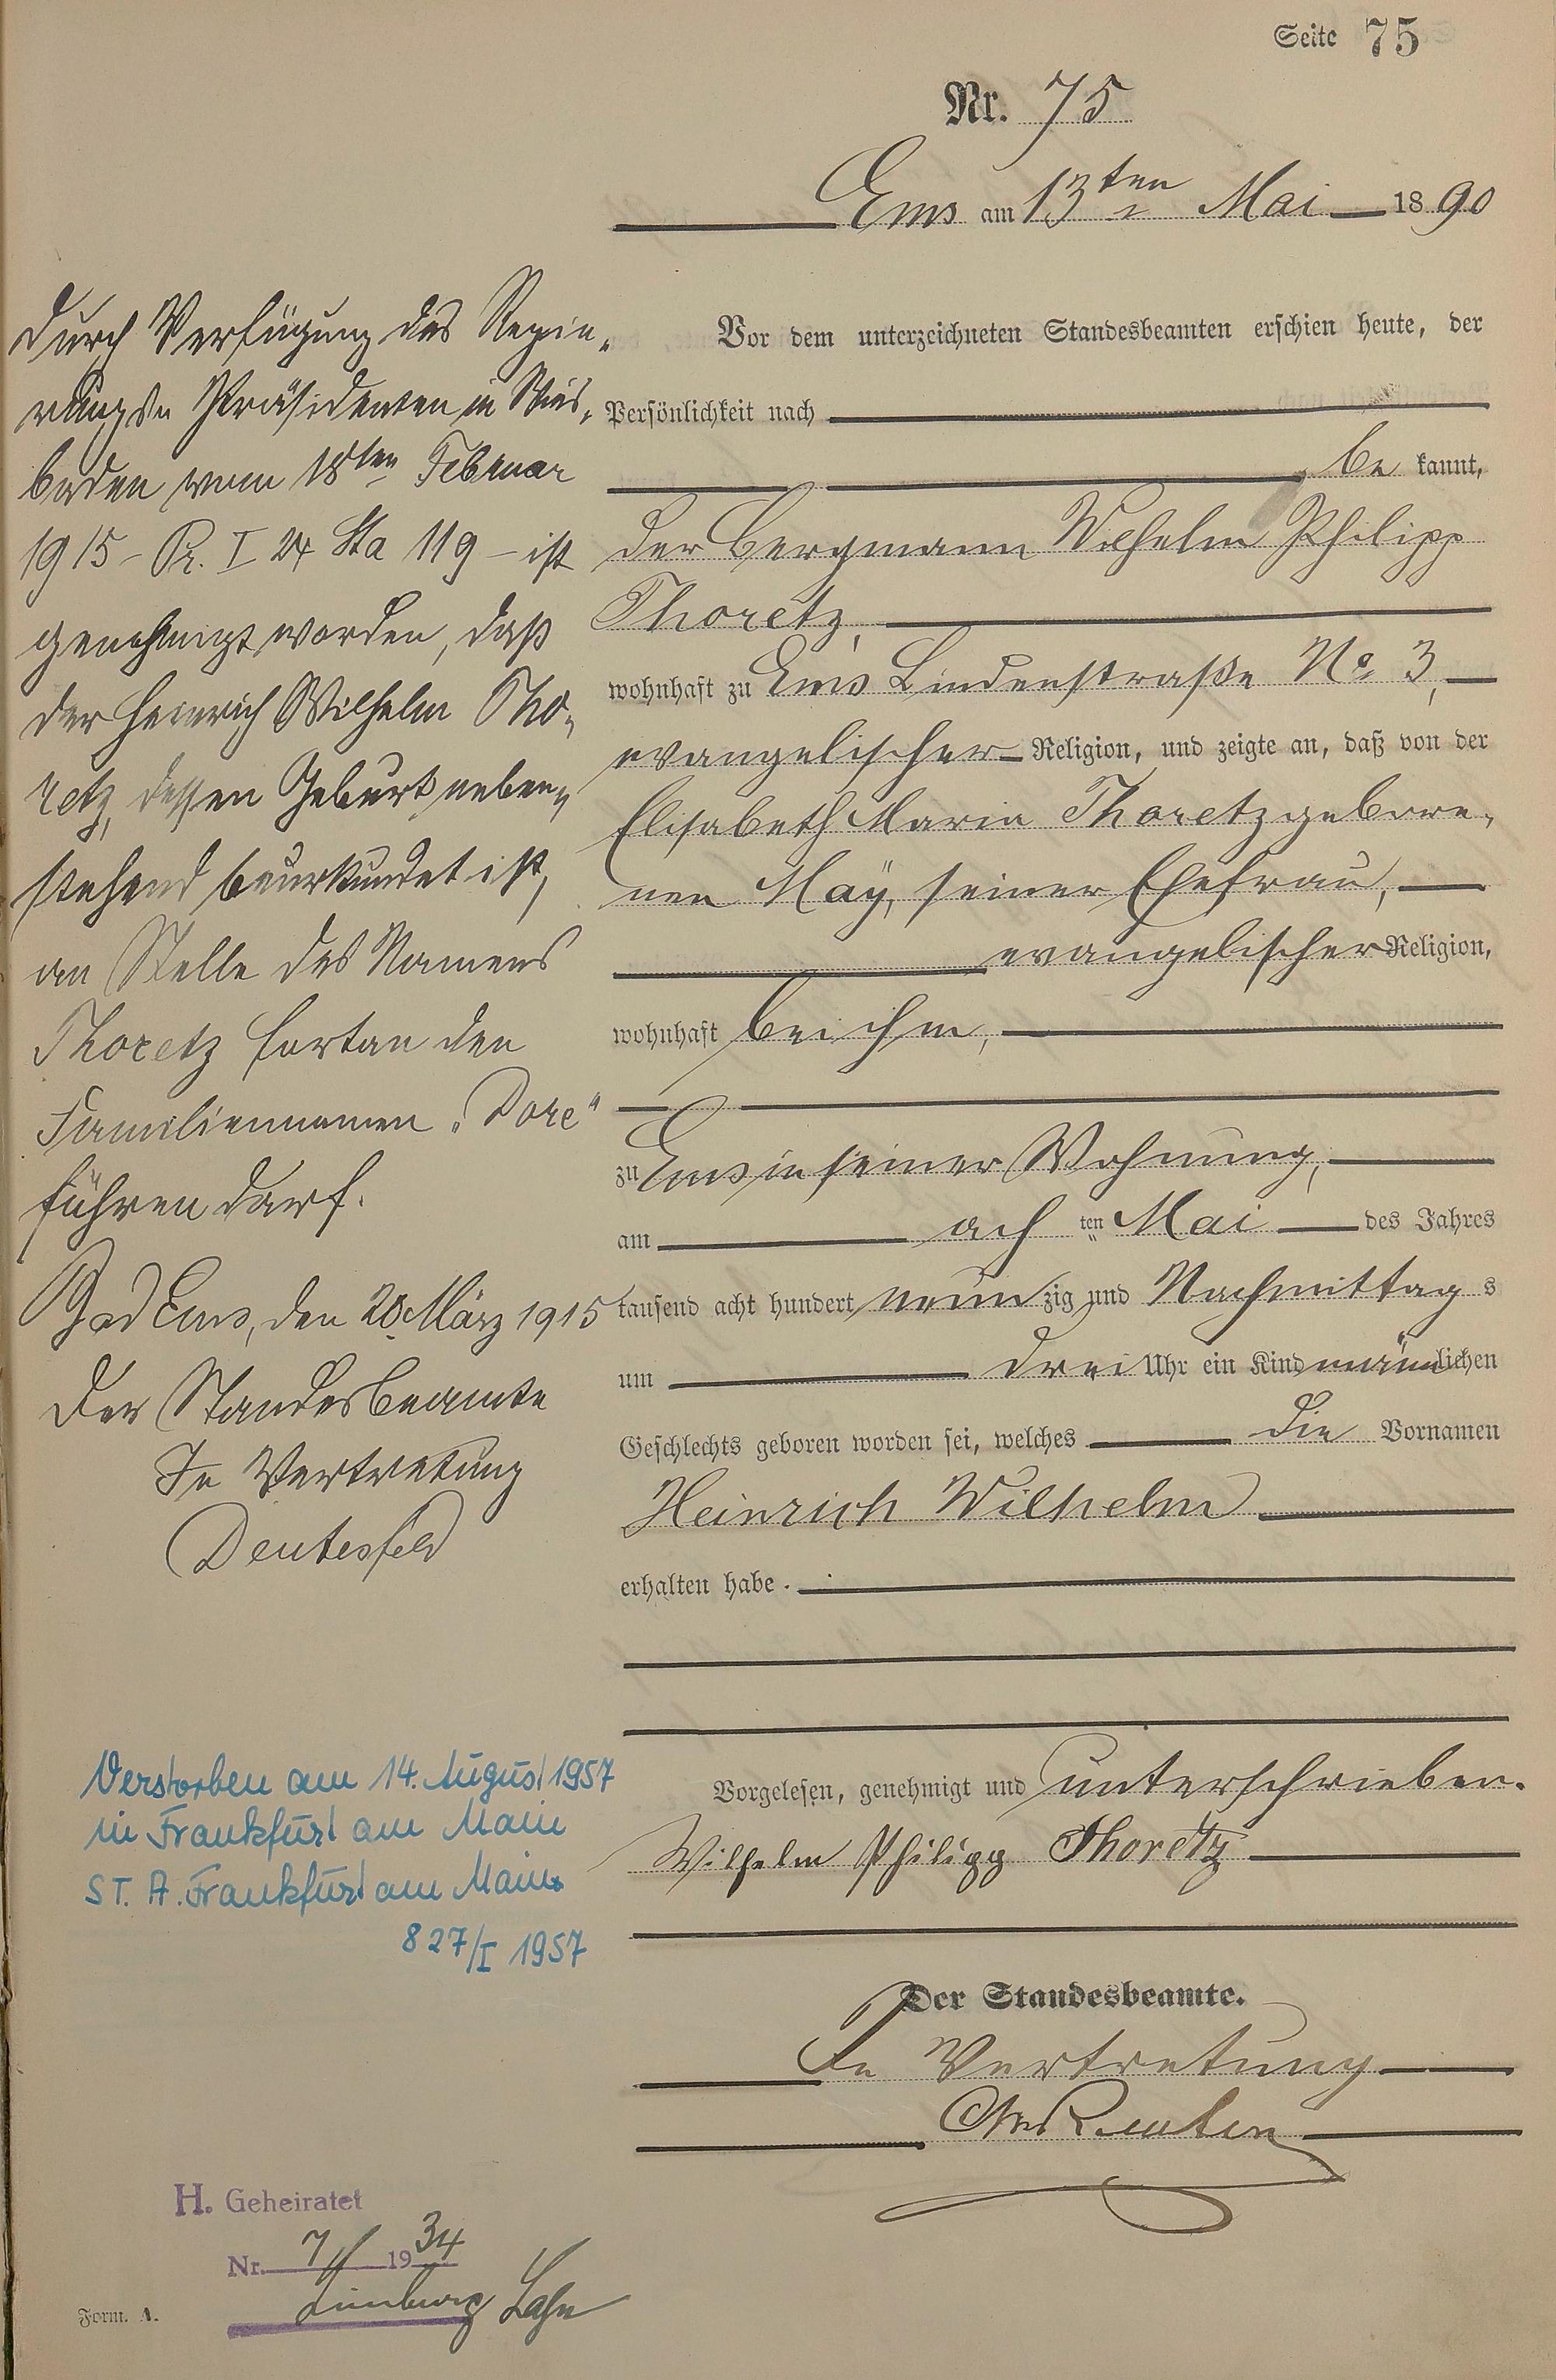 Seite 75
Nr. 75
Ems am 13ten Mai 1890
Vor dem unterzeichneten Standesbeamten erschien heute, der
Persönlichkeit nach
be kannt,
der Bergmann Wilhelm Philipp
Thoretz,
wohnhaft zu Ems Lindenstraße No 3,
evangelischer Religion, und zeigte an, daß von der
Elisabeth Maria Thoretz gebore-
nen Maÿ, seiner Ehefrau,
evangelischer Religion,
wohnhaft bei ihm,
zu Ems in seiner Wohnung,
am ach ten Mai des Jahres
tausend acht hundert neun zig und Nachmittag s
um drei Uhr ein Kind männlichen
Geschlechts geboren worden sei, welches die Vornamen
Heinrich Wilhelm
erhalten habe.
Vorgelesen, genehmigt und unterschrieben.
Wilhelm Philipp Thoretz
Der Standesbeamte.
In Vertretung
Durch Verfügung des Regie-
rungs Präsidenten in Wies-
baden vom 18ten Februar
1915 - Pr. I 24 Sta 119 - ist
genehmigt worden, daß
der Heinrich Wilhelm Tho-
retz, dessen Geburt neben-
stehend beurkundet ist,
an Stelle des Namens
Thoretz fortan den
Familiennamen „Dore“
führen darf.
Bad Ems, den 20. März 1915
Der Standesbeamte
In Vertretung
Deutesfeld
Verstorben am 14. August 1957
in Frankfurt am Main
ST. A. Frankfurt am Main
827/I 1957
H. Geheiratet
Nr. 7 1934
Limburg Lahn
Form. A.